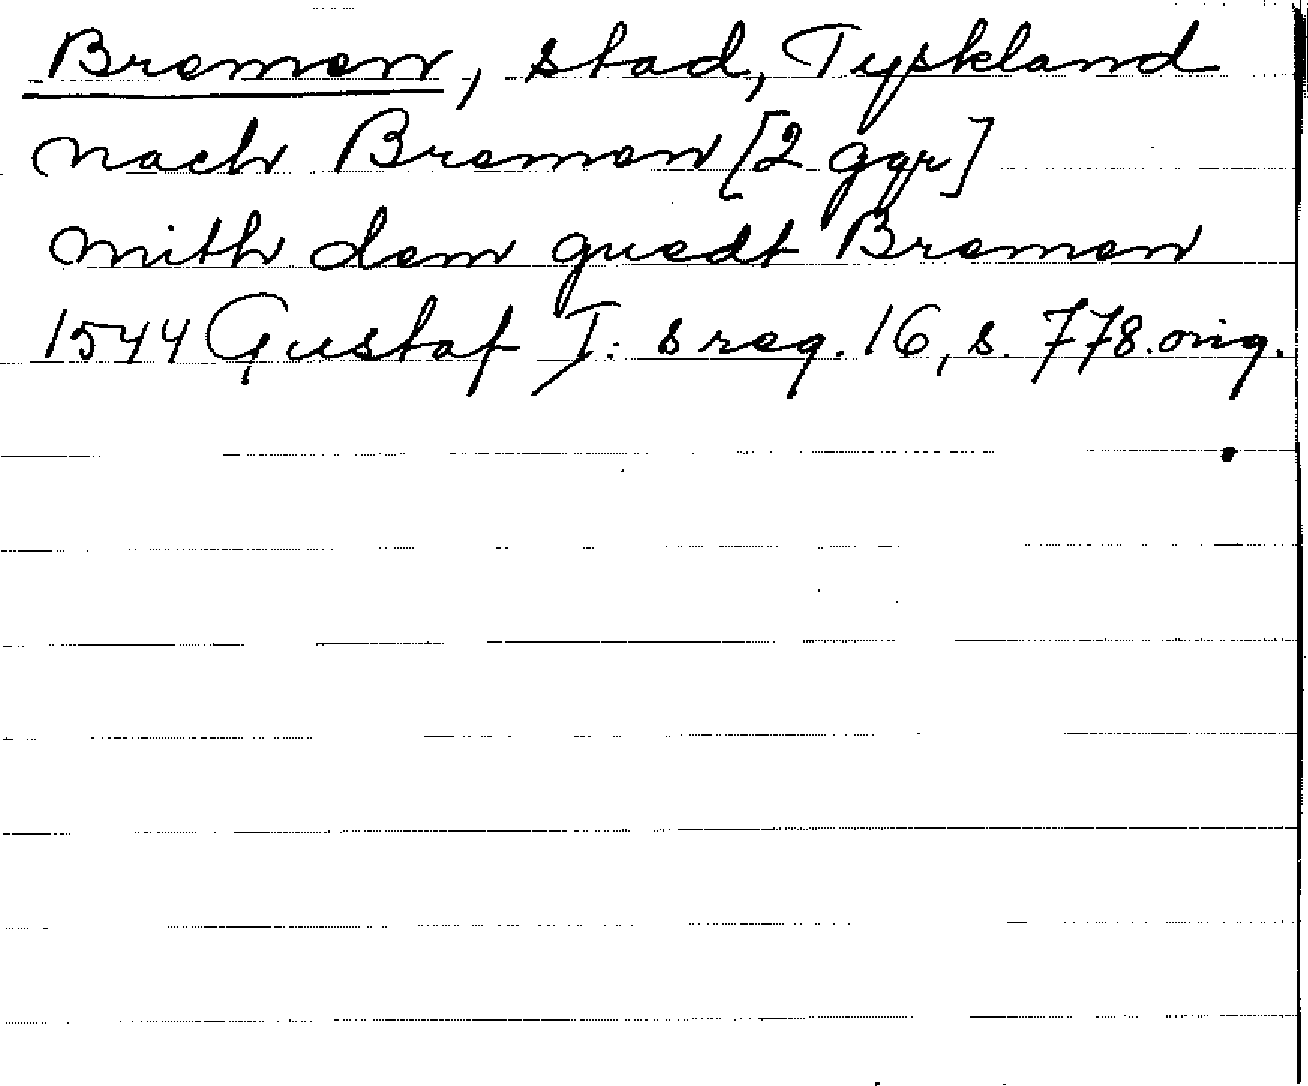 Bremen, stad, Tyskland
nach Bremen [2 ggr]
mith dem guedt Bremen
1544 Gustaf I: s reg. 16, s. 778. orig.